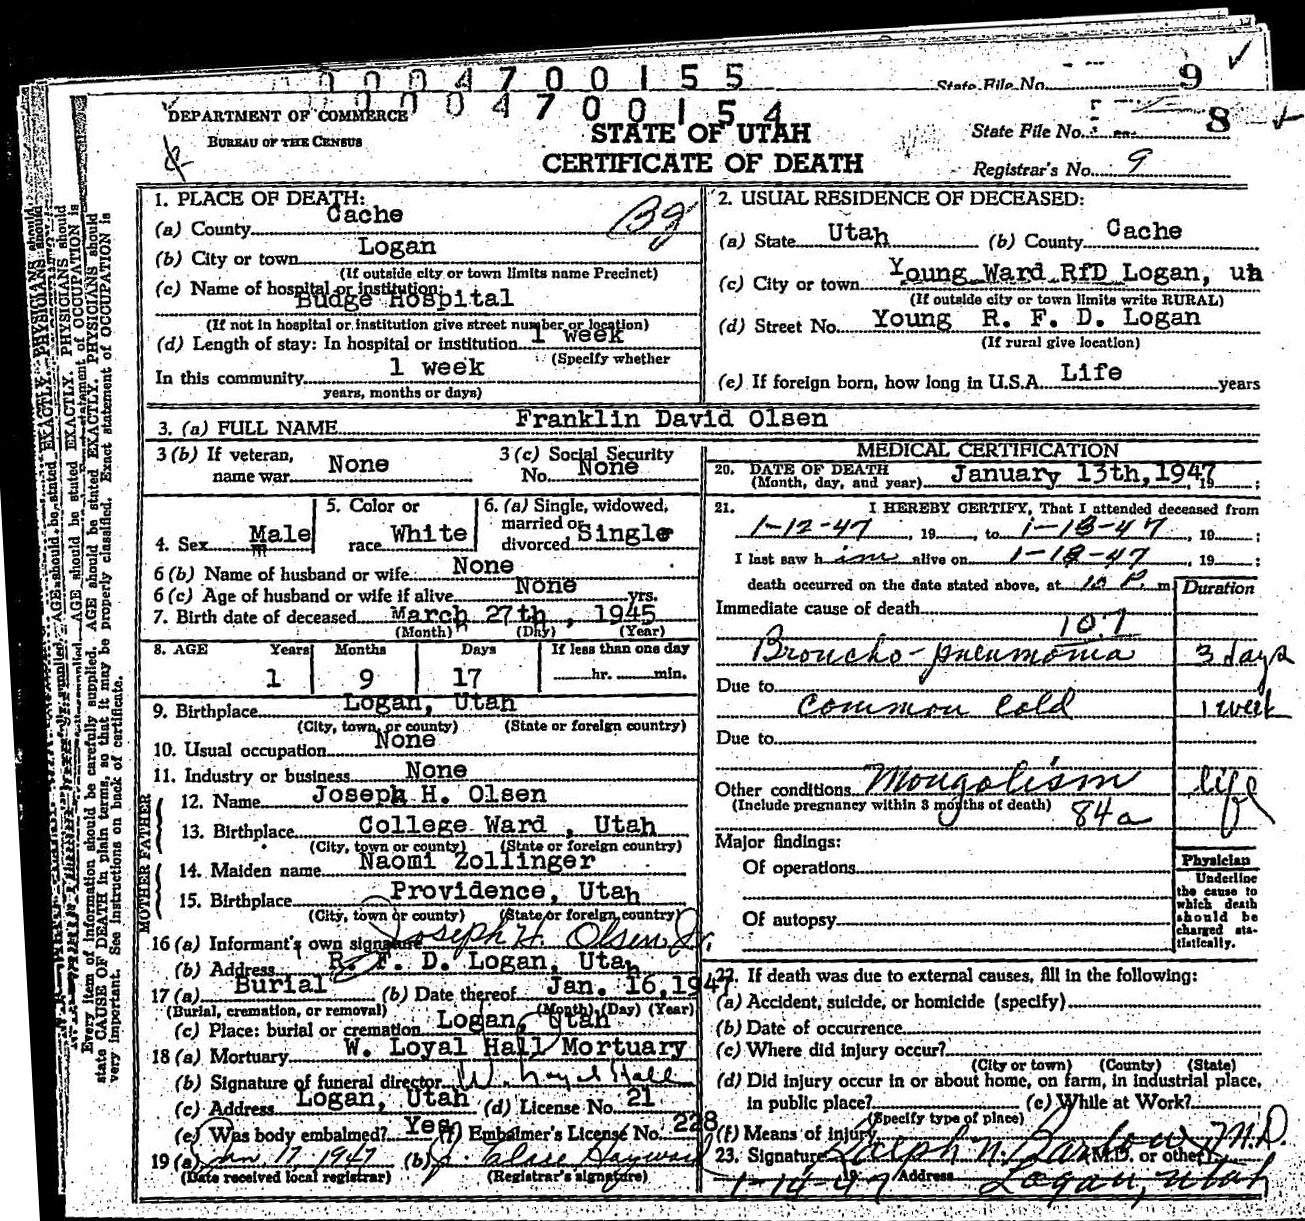 0 0 0 4 7 0 0 1 5 5
State File No. 9
0 0 0 4 7 0 0 1 5 4
DEPARTMENT OF COMMERCE
BUREAU OF THE CENSUS
STATE OF UTAH
CERTIFICATE OF DEATH
State File No. 8
Registrar's No. 9
1. PLACE OF DEATH:
(a) County Cache
(b) City or town Logan
(If outside city or town limits name Precinct)
(c) Name of hospital or institution:
Budge Hospital
(If not in hospital or institution give street number or location)
(d) Length of stay: In hospital or institution 1 week
(Specify whether
In this community 1 week
years, months or days)
2. USUAL RESIDENCE OF DECEASED:
(a) State Utah (b) County Cache
(c) City or town Young Ward RfD Logan, uh
(If outside city or town limits write RURAL)
(d) Street No. Young R. F. D. Logan
(If rural give location)
(e) If foreign born, how long in U.S.A. Life years
3. (a) FULL NAME Franklin David Olsen
3 (b) If veteran, name war None
3 (c) Social Security No. None
4. Sex Male
5. Color or race White
6. (a) Single, widowed, married or divorced Single
6 (b) Name of husband or wife None
6 (c) Age of husband or wife if alive None yrs.
7. Birth date of deceased March 27th, 1945
(Month) (Day) (Year)
8. AGE Years Months Days If less than one day
1 9 17 hr. min.
9. Birthplace Logan, Utah
(City, town, or county) (State or foreign country)
10. Usual occupation None
11. Industry or business None
FATHER
12. Name Joseph H. Olsen
13. Birthplace College Ward, Utah
(City, town or county) (State or foreign country)
MOTHER
14. Maiden name Naomi Zollinger
15. Birthplace Providence, Utah
(City, town or county) (State or foreign country)
16 (a) Informant's own signature Joseph H. Olsen Jr.
(b) Address R. F. D. Logan, Utah
17 (a) Burial (b) Date thereof Jan. 16, 1947
(Burial, cremation, or removal) (Month) (Day) (Year)
(c) Place: burial or cremation Logan, Utah
18 (a) Mortuary W. Loyal Hall Mortuary
(b) Signature of funeral director W. Loyal Hall
(c) Address Logan, Utah (d) License No. 21
(e) Was body embalmed? Yes (f) Embalmer's License No. 228
19 (a) Jan. 17, 1947 (b) Hayward
(Date received local registrar) (Registrar's signature)
MEDICAL CERTIFICATION
20. DATE OF DEATH January 13th, 1947, 19 ;
(Month, day, and year)
21. I HEREBY CERTIFY, That I attended deceased from
1-12-47, 19 , to 1-13-47, 19 ;
I last saw him alive on 1-13-47, 19 ;
death occurred on the date stated above, at 10 P. m.
Duration
Immediate cause of death
107
Broncho-pneumonia 3 days
Due to
Common Cold 1 week
Due to
Other conditions Mongolism life
(Include pregnancy within 3 months of death) 84a
Major findings:
Of operations
Of autopsy
Physician
Underline
the cause to
which death
should be
charged sta-
tistically.
22. If death was due to external causes, fill in the following:
(a) Accident, suicide, or homicide (specify)
(b) Date of occurrence
(c) Where did injury occur?
(City or town) (County) (State)
(d) Did injury occur in or about home, on farm, in industrial place,
in public place? (e) While at Work?
(Specify type of place)
(f) Means of injury
23. Signature Joseph N. Barlow, M.D.
(M.D. or other)
1-14-47 Address Logan, Utah
Every item of information should be carefully supplied. AGE should be stated EXACTLY. PHYSICIANS should
state CAUSE OF DEATH in plain terms, so that it may be properly classified. Exact statement of OCCUPATION is
very important. See instructions on back of certificate.